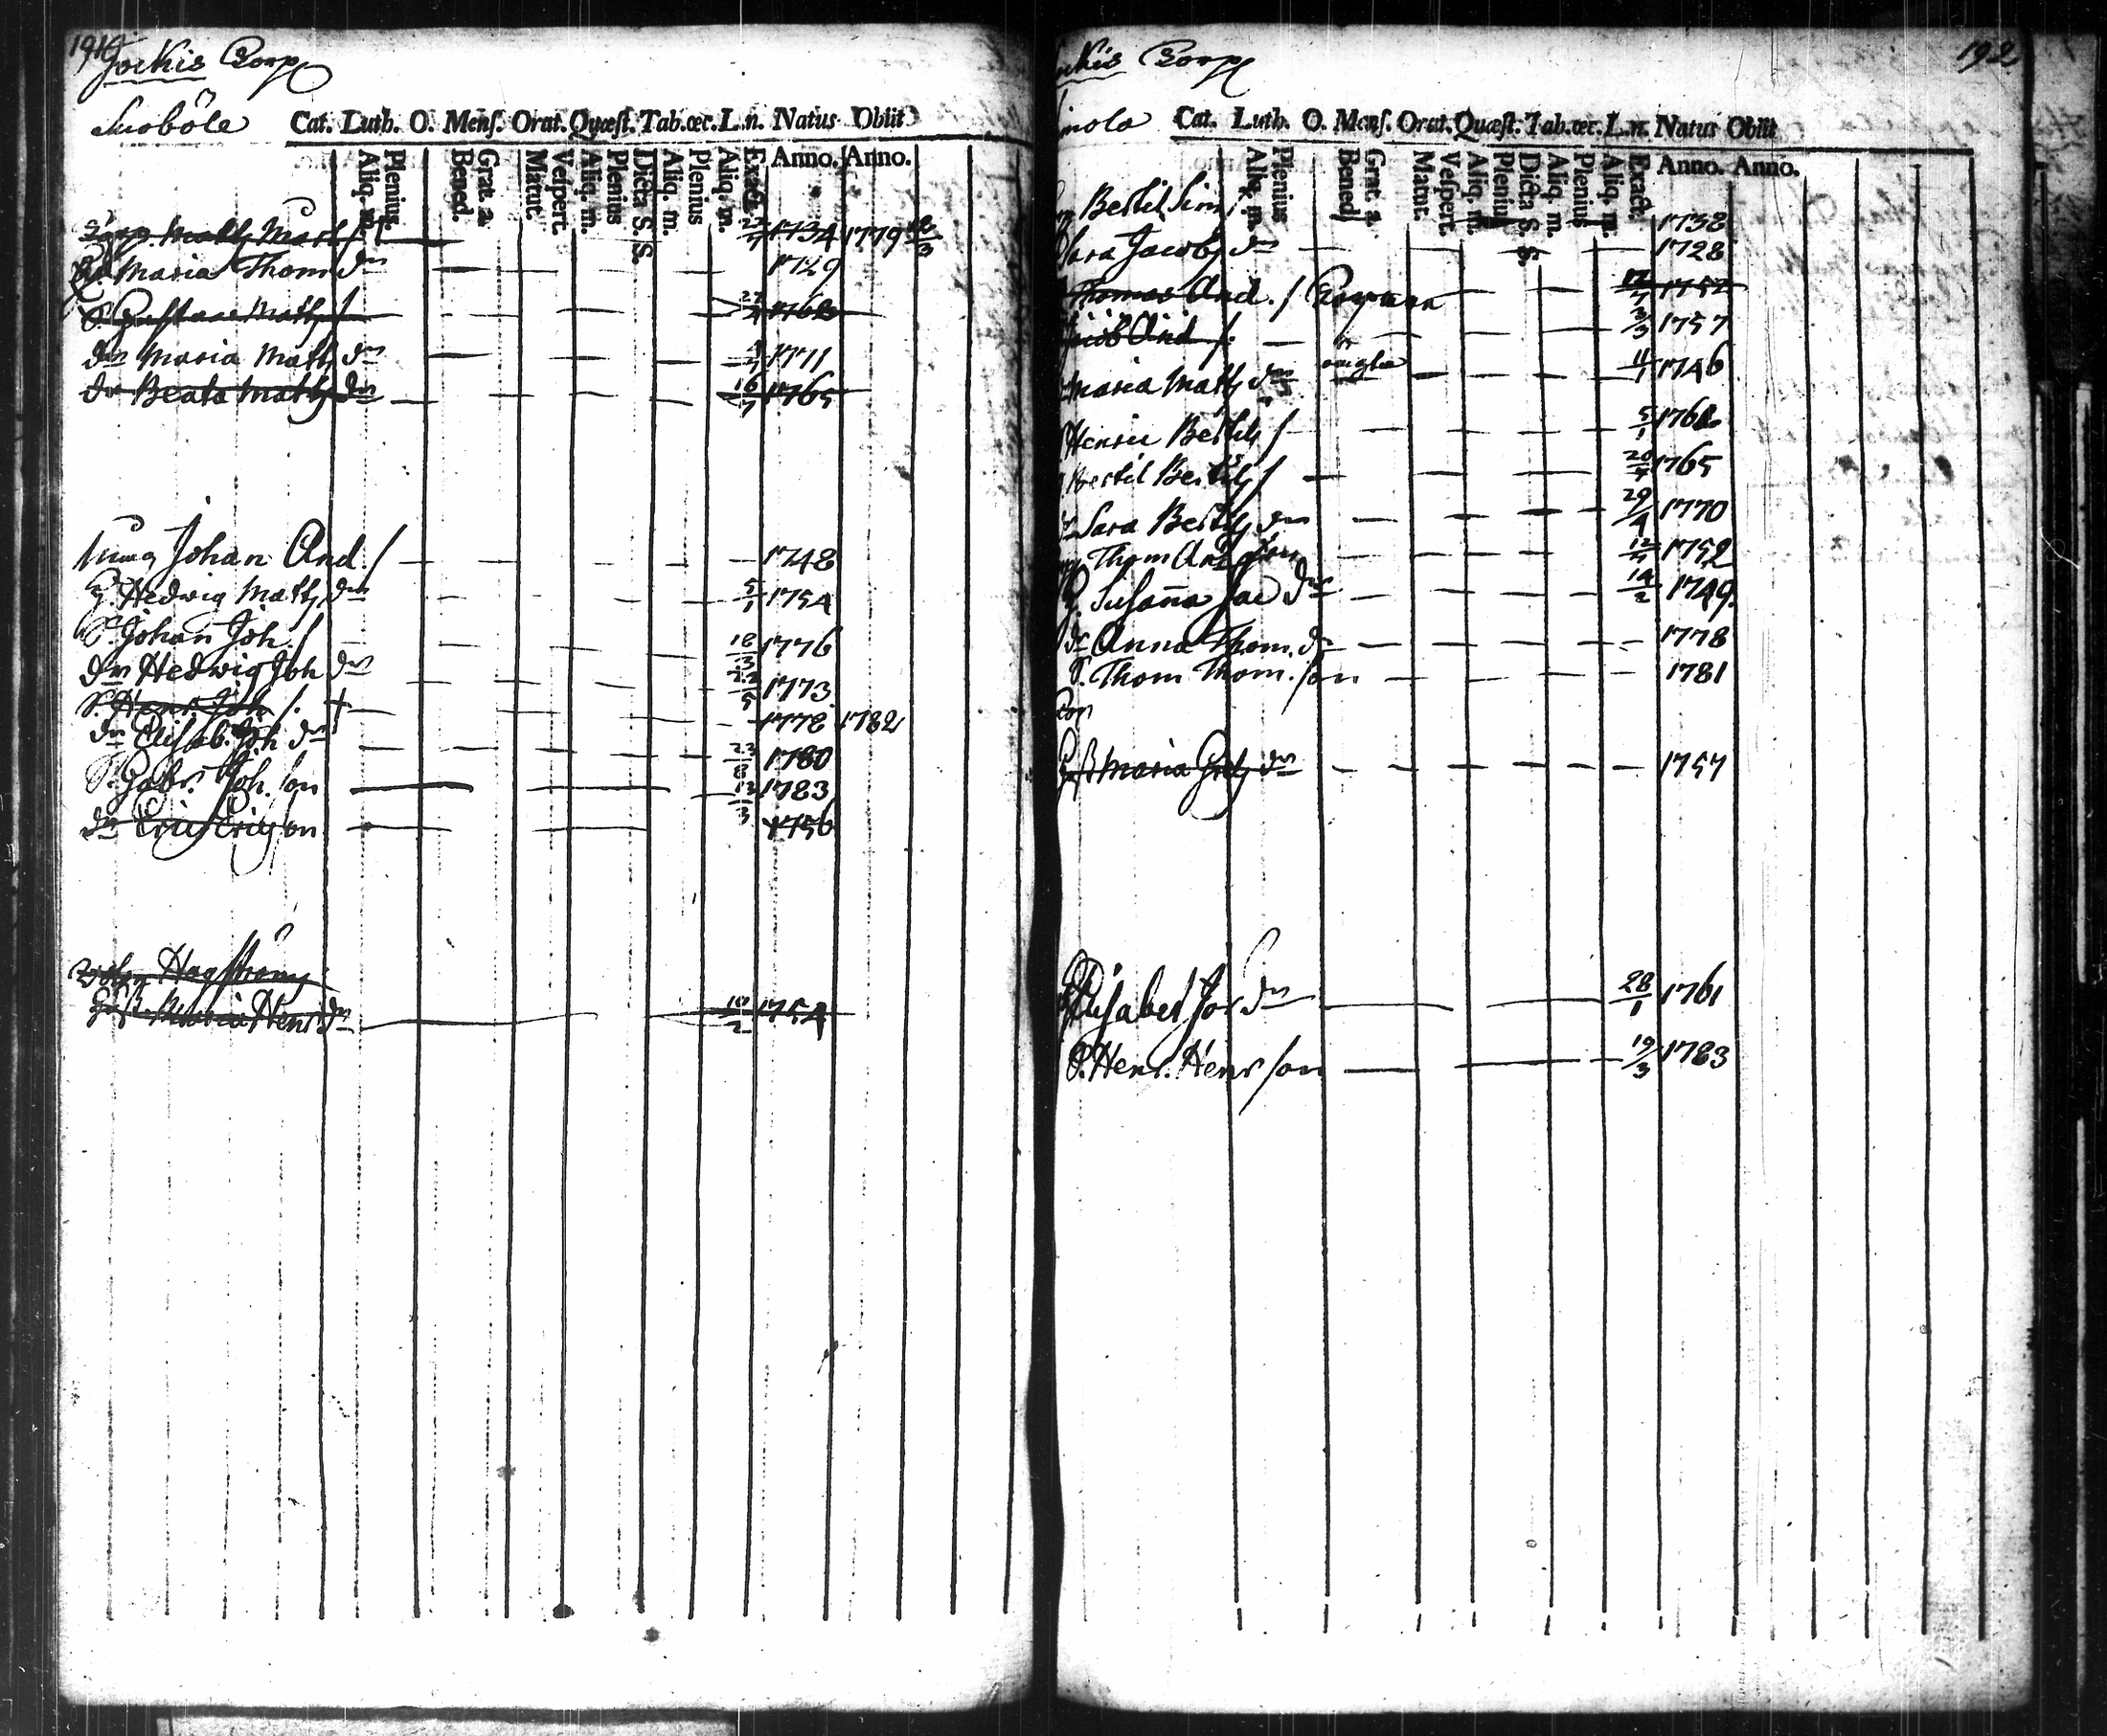 191 Jockis Corp
Suoböle Cat. Luth. O. Menſ. Orat. Quæſt. Tab.œc. L.n. Natus Obiit
Aliq. m. Plenius. Bened. Grat. a. Matut. Veſpert. Aliq. m. Plenius Dicta S. S. Aliq. m. Plenius Aliq. m. Exact. Anno. Anno.
Matts Mart 1734 1779
Maria Thom dr 1729
S. Gustav Matts 27/7 1762
dr Maria Matts dr 1771
dr Beata Matts dr 16/7 1765
Johan And. 1748
H. Hedwig Matts dr 5/1 1754
S. Johan Joh. 18/3 1776
dr Hedwig Joh dr 1773
S. Henr Joh 1778 1782
dr Elisab. Joh dr 23/8 1780
S. Gabr. Joh. son 12/3 1783
Eric Ericson 1756
Hagström
Maria Henr dr 10/2 1754
ckis Corp 192
mola Cat. Luth. O. Menſ. Orat. Quæſt. Tab.œc. L.n. Natus Obiit
Aliq. m. Plenius Bened. Grat. a. Matut. Veſpert. Aliq. m. Plenius Dicta S. S. Aliq. m. Plenius Aliq. m. Exact. Anno. Anno.
Bertil Sim 1738
Sara Jacobs dr 1728
Thomas And. 12/7 1752
Jacob And 3/3 1757
Maria Matts dr 11/1 1746
Henric Bertils 5/1 1762
Bertil Bertils 20/7 1765
Sara Bertils dr 29/4 1770
Thom And son 1752
H. Susaña Jac dr 14/2 1749.
dr Anna Thom. dr 1778
S. Thom Thom. son 1781
Maria dr 1757
Elisabet dr 28/1 1761
S. Henr. Henrson 19/3 1783